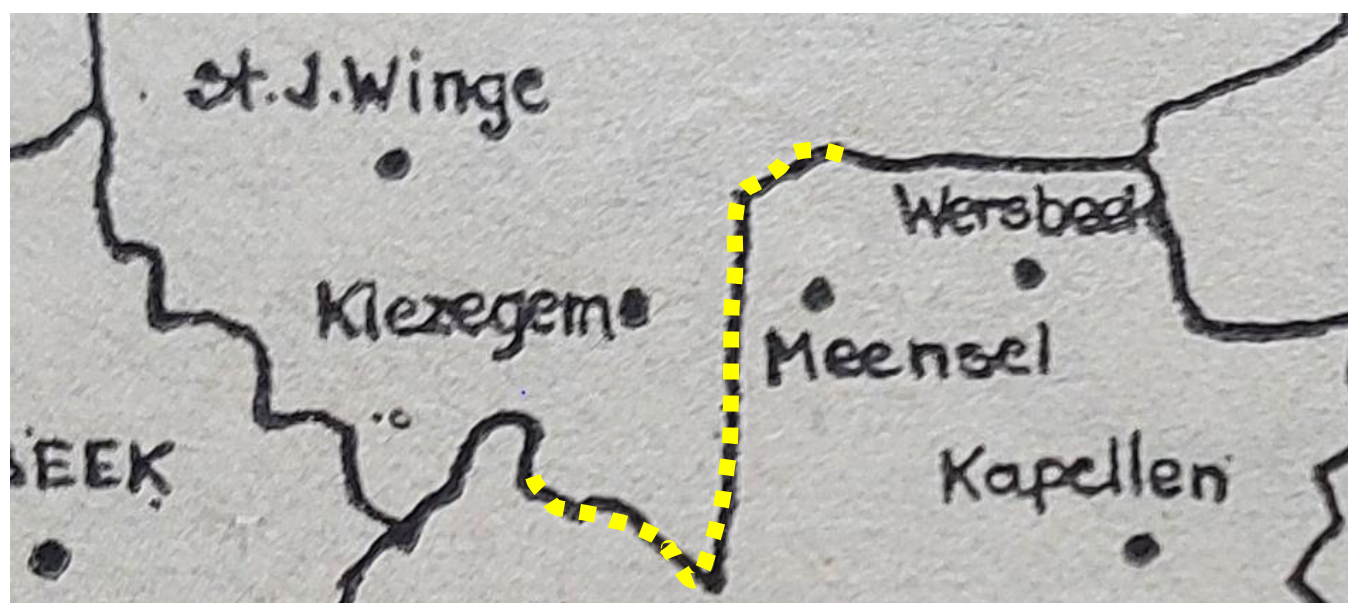 St. J. Winge
Wersbeek
Kiezegem
Meensel
EEK
Kapellen